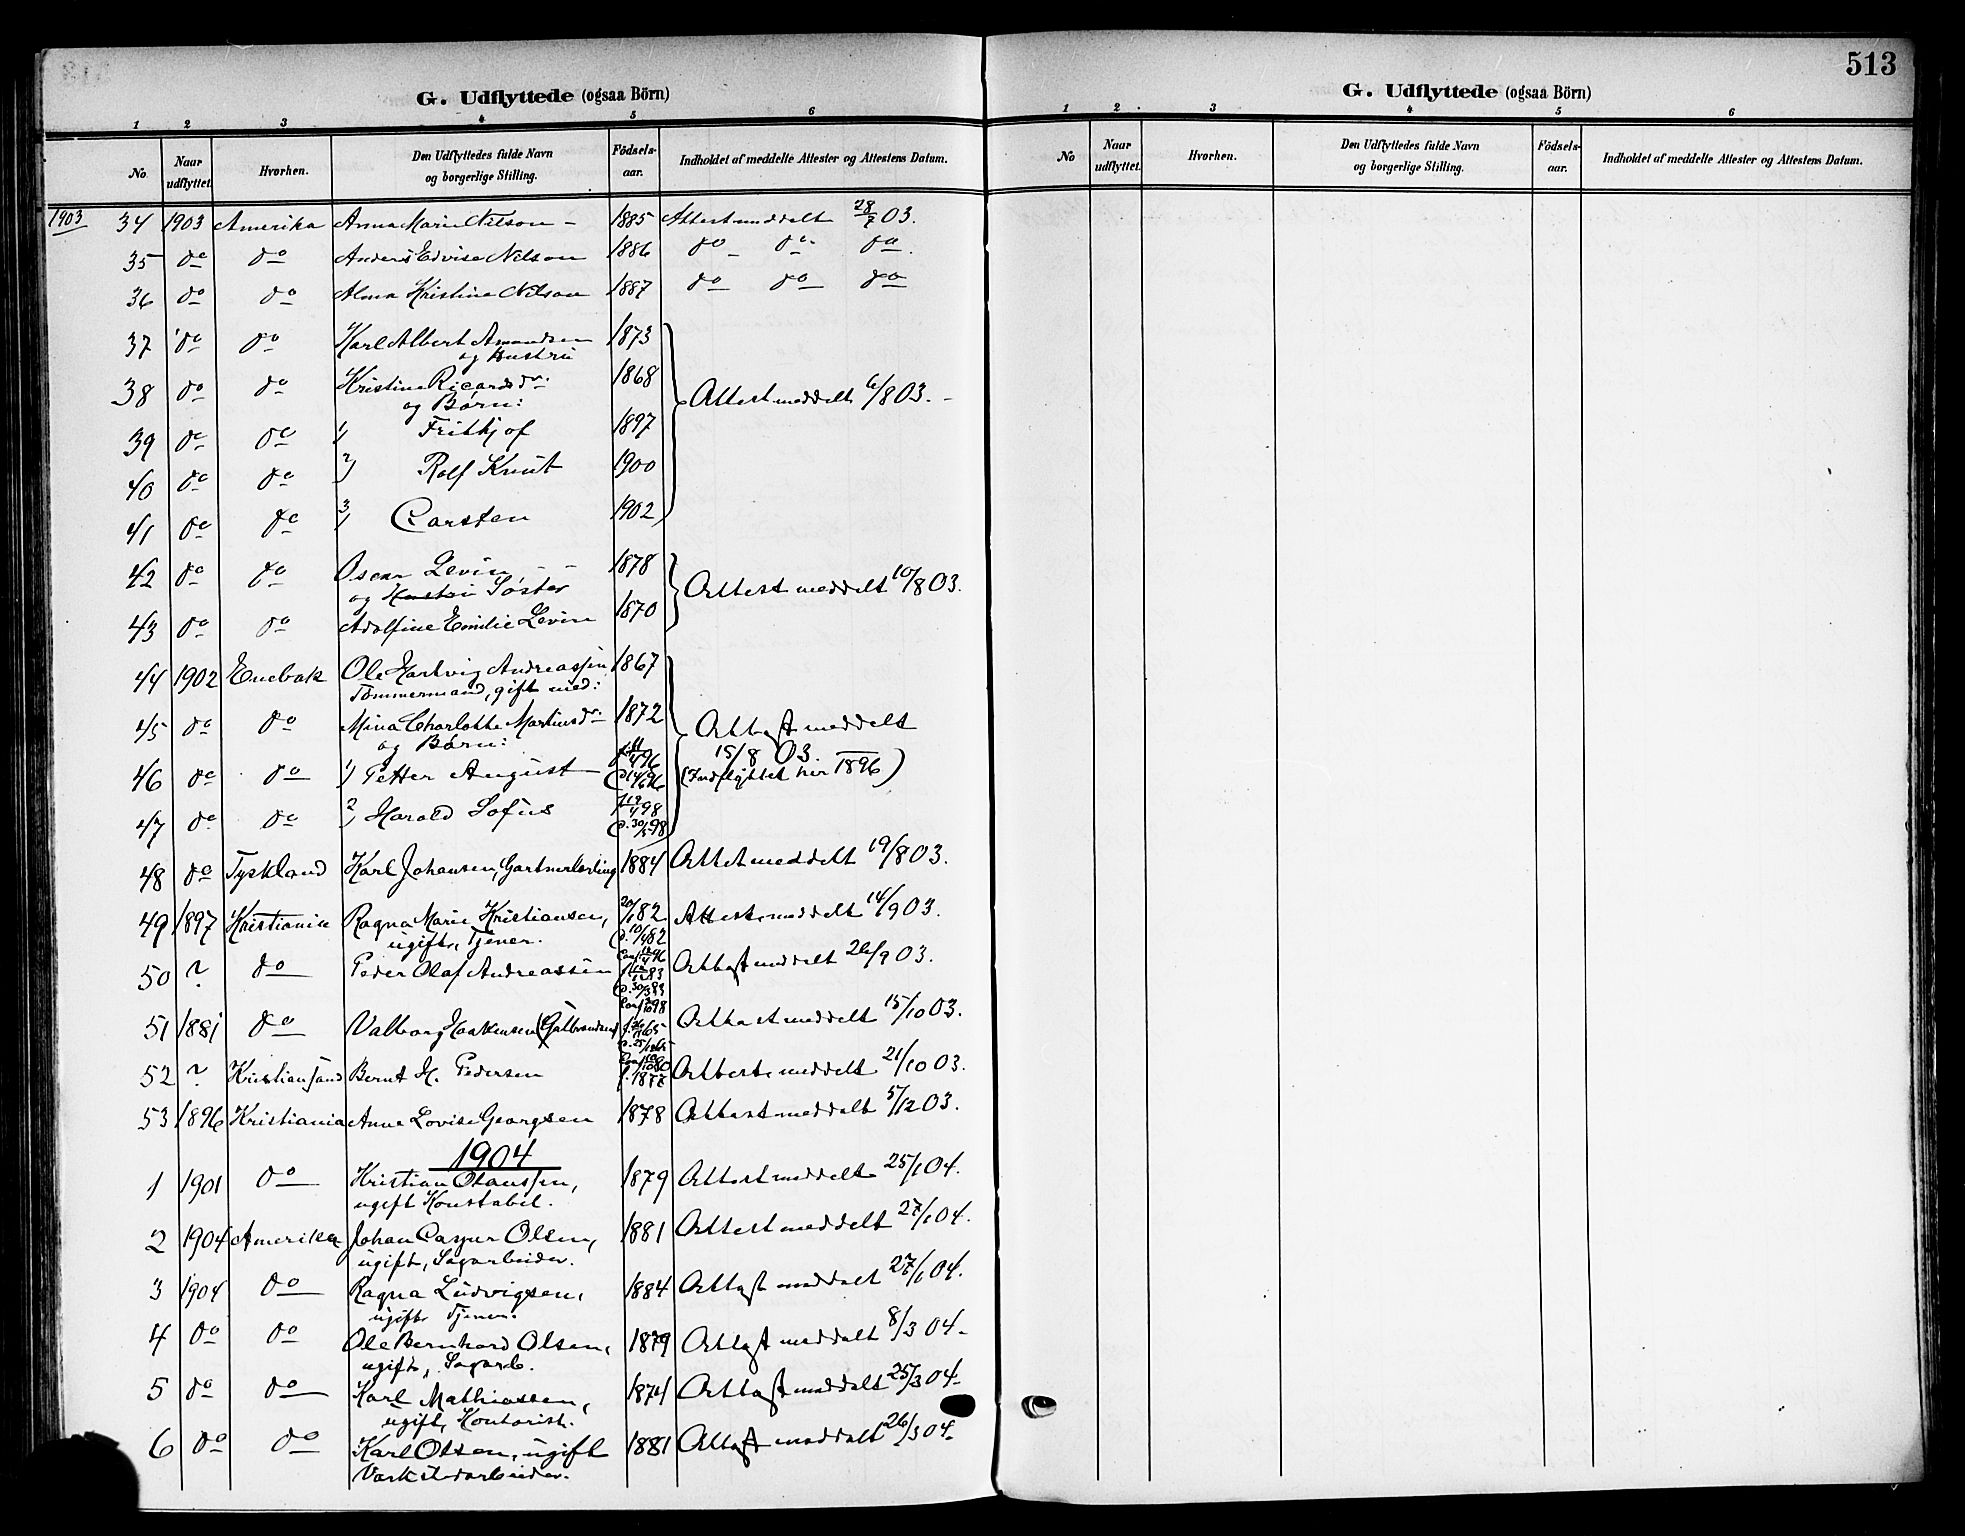 513
G. Udflyttede (ogsaa Börn)
1 2 3 4 5 6
No Naar udflyttet. Hvorhen. Den Udflyttedes fulde Navn og borgerlige Stilling. Födsels-aar. Indholdet af meddelte Attester og Attestens Datum.
1903
34 1903 Amerika Anna Marie Nilson - 1885 Attest meddelt 28/7 03.
35 do do Anders Edvise Nilson 1886 do - do do.
36 do do Alma Kristine Nilson 1887 do do do
37 do do Karl Albert Amundsen 1873
og Hustru
38 do do Kristine Ricardsdr: 1868 Attest meddelt 6/8 03. -
og Børn:
39 do do 1) Frithjof 1897
40 do do 2) Rolf Knut 1900
41 do do 3) Carsten 1902
42 do do Oscar Levin - - 1878
og Hustru Søster Attest meddelt 10/8 03.
43 do do Adolfine Emilie Levin 1870
44 1902 Enebak Ole Hartvig Andreassen 1867
Tømmermand, gift med:
45 do do Mina Charlotte Martinsdr: 1872 Attest meddelt
og Børn: 15/8 03.
46 do do 1) Petter August (Indflyttet her 1896)
47 do do 2) Harald Sofus
48 do Tyskland Karl Johansen, Gartnerlærling 1884 Attest meddelt 19/8 03.
49 1897 Kristiania Ragna Marie Kristiansen, 20/1 82 Attest meddelt 14/9 03.
ugift, Tjener. 10/4 82
50 ? do Peder Olaf Andreassen Attest meddelt 26/9 03.
51 1881 do Valborg Haakensen (Gulbrandsen) Attest meddelt 15/10 03.
52 ? Kristiansand Bernt H. Pedersen f. 1877 Attest meddelt 21/10 03.
53 1896 Kristiania Anne Lovise Georgsen 1878 Attest meddelt 5/12 03.
1904
1 1901 do Kristian Olaussen, 1879 Attest meddelt 25/1 04.
ugift Konstabel.
2 1904 Amerika Johan Caspar Olsen, 1881 Attest meddelt 27/1 04.
ugift, Sagarbeider.
3 1904 do Ragna Ludvigsen, 1884 Attest meddelt 27/1 04.
ugift Tjener.
4 do do Ole Bernhard Olsen, 1879 Attest meddelt 8/3 04-
ugift, Sagarb.
5 do do Karl Mathiassen, 1874 Attest meddelt 25/3 04-
ugift, Kontorist.
6 do do Karl Olsen, ugift 1881 Attest meddelt 26/3 04-
Værkstedarbeider.
G. Udflyttede (ogsaa Börn)
1 2 3 4 5 6
No Naar udflyttet. Hvorhen. Den Udflyttedes fulde Navn og borgerlige Stilling. Födsels-aar. Indholdet af meddelte Attester og Attestens Datum.